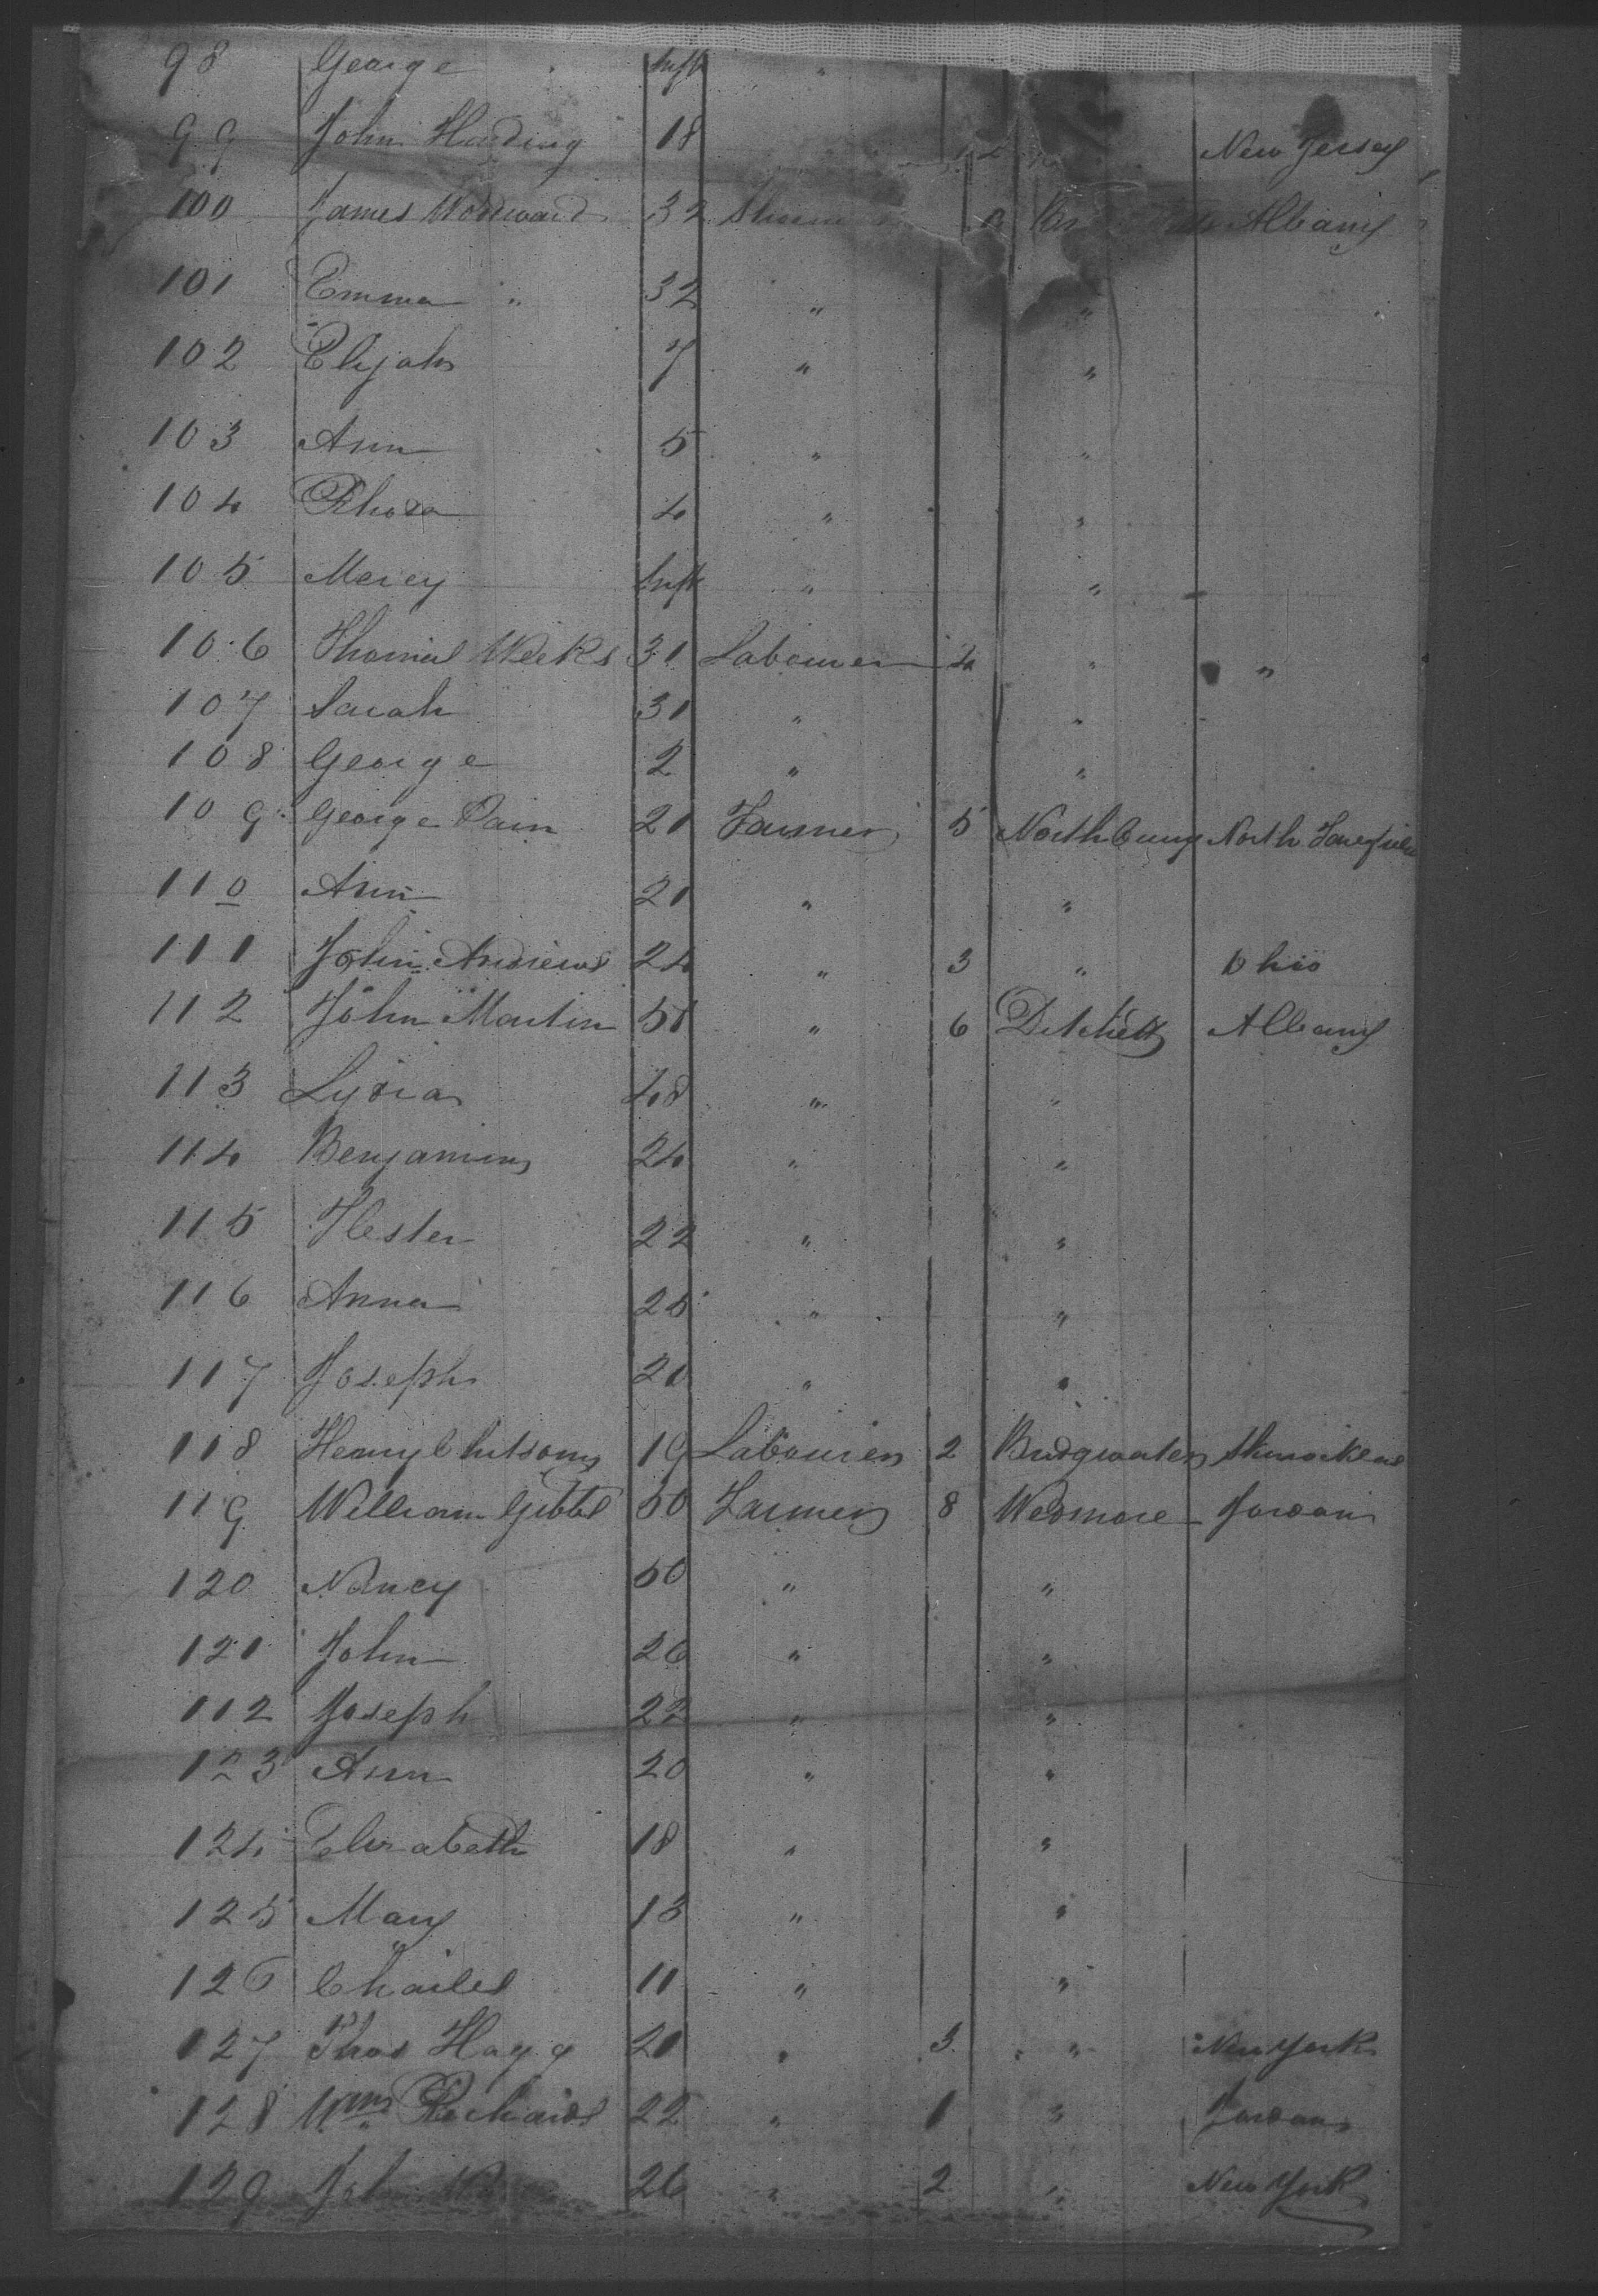 98 George Inft "
99 John Harding 18 New Jersey
100 James Woodward 32 Albany
101 Emma " 32 " "
102 Elijah 7 " "
103 Ann 5 " "
104 Rhoda 4 " "
105 Mercy Inft " "
106 Thomas Weeks 31 Labourer 4 " "
107 Sarah 31 " "
108 George 2 " "
109 George Pain 21 Farmer 5 North Cury North
110 Ann 21 " "
111 John Andrews 24 " 3 " Ohio
112 John Martin 51 " 6 Ditchett Albany
113 Lydia 48 " "
114 Benjamin 24 " "
115 Hester 22 " "
116 Anna 25 " "
117 Joseph 20 " "
118 Henry Chitsom 19 Labourer 2 Bridgwater
119 William Gibbs 50 Farmer 8 Wedmore Jordan
120 Nancy 50 " "
121 John 26 " "
112 Joseph 22 " "
123 Ann 20 " "
124 Elizabeth 18 " "
125 Mary 13 " "
126 Charles 11 " "
127 Thos Hagg 21 " 3 " New York
128 Wm Richards 22 " 1 " Jordan
129 John 26 " 2 " New York